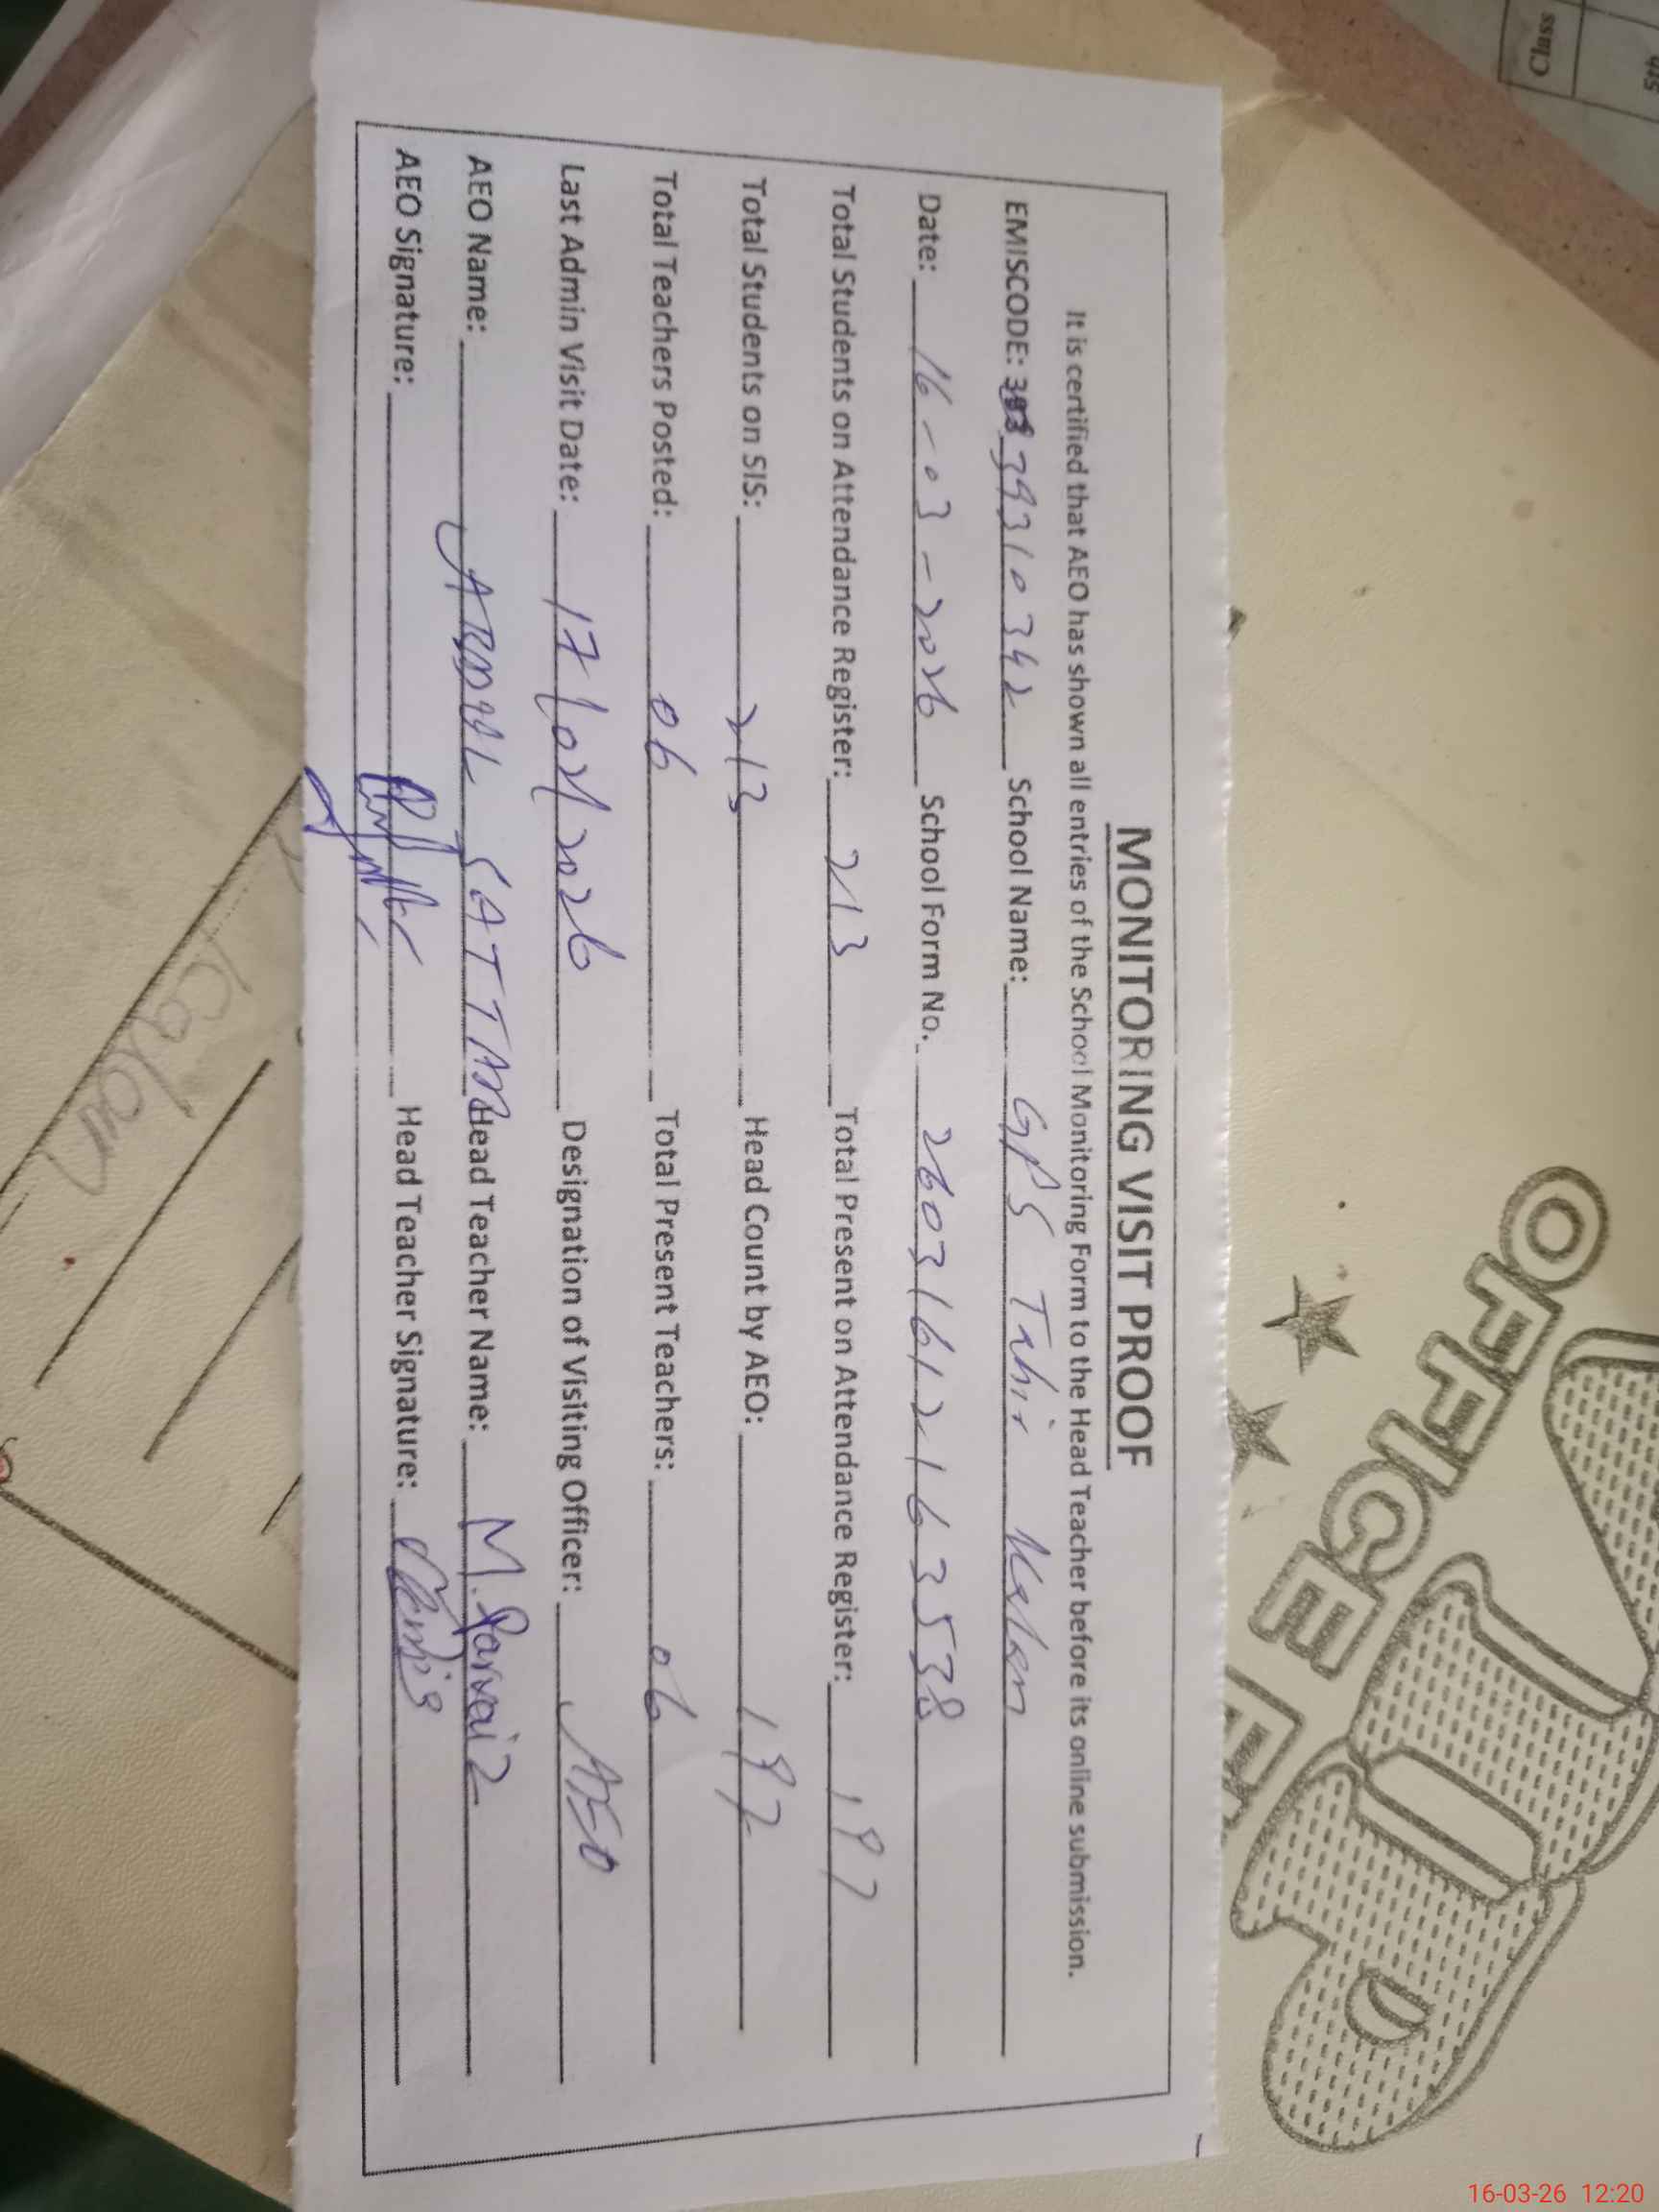 MONITORING VISIT PROOF
It is certified that AEO has shown all entries of the School Monitoring Form to the Head Teacher before its online submission.
EMISCODE: 39310342 School Name: GPS Tahir Kalan
Date: 16-03-2026 School Form No. 2603161216353​8
Total Students on Attendance Register: 213 Total Present on Attendance Register: 197
Total Students on SIS: 213 Head Count by AEO: 197
Total Teachers Posted: 06 Total Present Teachers: 06
Last Admin Visit Date: 17/02/2026 Designation of Visiting Officer: AEO
AEO Name: Head Teacher Name: M. Parvaiz
AEO Signature: Head Teacher Signature:
OFFICE
Class
5th
Kalan
16-03-26 12:20